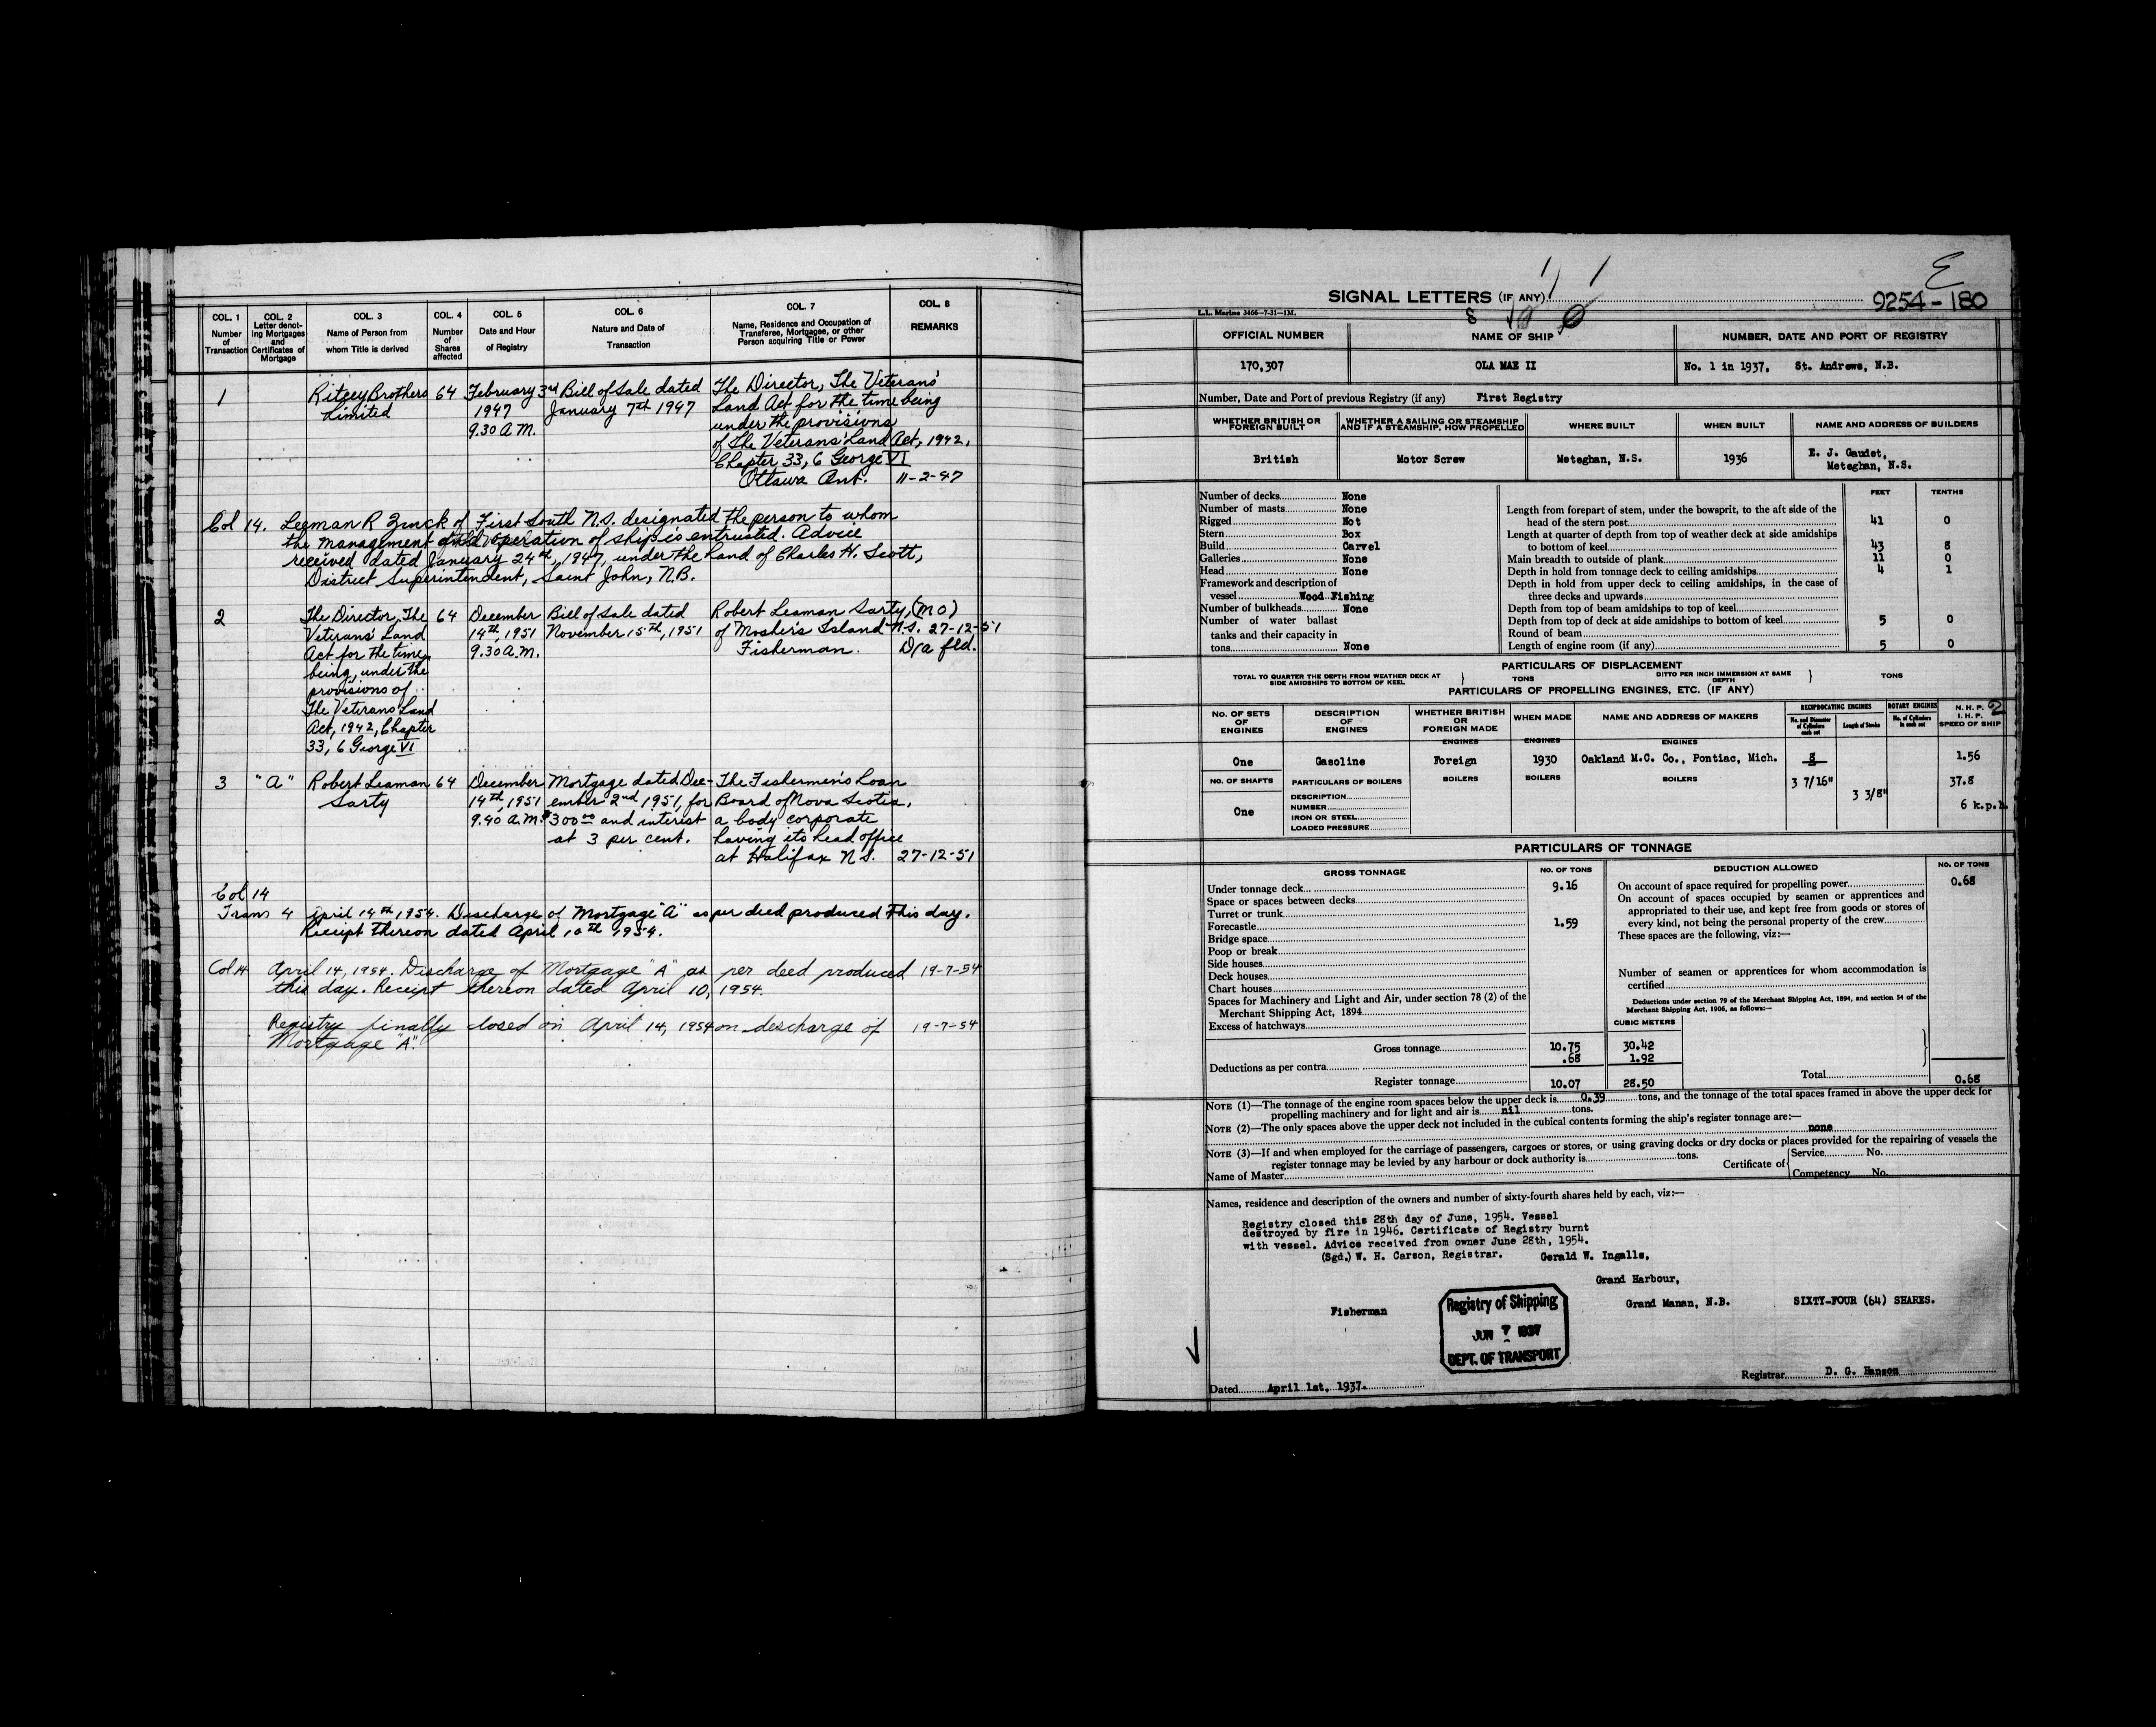 COL. 1 Number of Transaction
COL. 2 Letter denoting Mortgages and Certificates of Mortgage
COL. 3 Name of Person from whom Title is derived
COL. 4 Number of Shares affected
COL. 5 Date and Hour of Registry
COL. 6 Nature and Date of Transaction
COL. 7 Name, Residence and Occupation of Transferee, Mortgagee, or other Person acquiring Title or Power
COL. 8 REMARKS
1 Ritcey Brothers 64 February 3rd Bill of Sale dated The Director, The Veterans'
Limited 1947 January 7th 1947 Land Act for the time being
9.30 A.M. under the provisions
of The Veterans' Land Act, 1942,
Chapter 33, 6 George VI
Ottawa Ont. 11-2-47
Col 14. Leeman R Zinck of First South N.S. designated the person to whom
the management and operation of ship is entrusted. Advice
received dated January 24th, 1947, under the hand of Charles H. Scott,
District Superintendent, Saint John, N.B.
2 The Director, The 64 December Bill of Sale dated Robert Leaman Sarty, (M O)
Veterans' Land 14th, 1951 November 15th, 1951 of Mosher's Island N.S. 27-12-51
Act for the time 9.30 A.M. Fisherman. D/a fld.
being, under the
provisions of
The Veterans Land
Act, 1942, Chapter
33, 6 George VI
3 "A" Robert Leaman 64 December Mortgage dated Dec- The Fishermen's Loan
Sarty 14th, 1951 ember 2nd 1951, for Board of Nova Scotia,
9.40 A.M. $300 00 and interest a body corporate
at 3 per cent. having its head office
at Halifax N.S. 27-12-51
Col 14
Trans 4 April 14th 1954. Discharge of Mortgage "A" as per deed produced this day.
Receipt thereon dated April 10th 1954.
Col 14 April 14, 1954. Discharge of Mortgage "A" as per deed produced 19-7-54
this day. Receipt thereon dated April 10, 1954.
Registry finally closed on April 14, 1954 on discharge of 19-7-54
Mortgage "A".
E
SIGNAL LETTERS (IF ANY) 9254-180
L.L. Marine 3466—7-31—1M.
OFFICIAL NUMBER NAME OF SHIP NUMBER, DATE AND PORT OF REGISTRY
170,307 OLA MAE II No. 1 in 1937, St. Andrews, N.B.
Number, Date and Port of previous Registry (if any) First Registry
WHETHER BRITISH OR FOREIGN BUILT
WHETHER A SAILING OR STEAMSHIP AND IF A STEAMSHIP, HOW PROPELLED
WHERE BUILT WHEN BUILT NAME AND ADDRESS OF BUILDERS
British Motor Screw Meteghan, N.S. 1936 E. J. Gaudet,
Meteghan, N.S.
FEET TENTHS
Number of decks None
Number of masts None
Rigged Not
Stern Box
Build Carvel
Galleries None
Head None
Framework and description of
vessel Wood Fishing
Number of bulkheads None
Number of water ballast
tanks and their capacity in
tons None
Length from forepart of stem, under the bowsprit, to the aft side of the
head of the stern post 41 0
Length at quarter of depth from top of weather deck at side amidships
to bottom of keel 43 8
Main breadth to outside of plank 11 0
Depth in hold from tonnage deck to ceiling amidships 4 1
Depth in hold from upper deck to ceiling amidships, in the case of
three decks and upwards
Depth from top of beam amidships to top of keel
Depth from top of deck at side amidships to bottom of keel 5 0
Round of beam
Length of engine room (if any) 5 0
PARTICULARS OF DISPLACEMENT
TOTAL TO QUARTER THE DEPTH FROM WEATHER DECK AT SIDE AMIDSHIPS TO BOTTOM OF KEEL } TONS DITTO PER INCH IMMERSION AT SAME DEPTH } TONS
PARTICULARS OF PROPELLING ENGINES, ETC. (IF ANY)
NO. OF SETS OF ENGINES
DESCRIPTION OF ENGINES
WHETHER BRITISH OR FOREIGN MADE
WHEN MADE
NAME AND ADDRESS OF MAKERS
RECIPROCATING ENGINES
No. and Diameter of Cylinders each set
Length of Stroke
ROTARY ENGINES
No. of Cylinders in each set
N. H. P. 2
I. H. P.
SPEED OF SHIP
ENGINES ENGINES ENGINES
One Gasoline Foreign 1930 Oakland M.C. Co., Pontiac, Mich. 8 1.56
NO. OF SHAFTS PARTICULARS OF BOILERS BOILERS BOILERS BOILERS 3 7/16" 37.8
One 3 3/8" 6 k.p.h.
DESCRIPTION
NUMBER
IRON OR STEEL
LOADED PRESSURE
PARTICULARS OF TONNAGE
GROSS TONNAGE NO. OF TONS DEDUCTION ALLOWED NO. OF TONS
Under tonnage deck 9.16
Space or spaces between decks
Turret or trunk
Forecastle 1.59
Bridge space
Poop or break
Side houses
Deck houses
Chart houses
Spaces for Machinery and Light and Air, under section 78 (2) of the
Merchant Shipping Act, 1894
Excess of hatchways
On account of space required for propelling power 0.68
On account of spaces occupied by seamen or apprentices and
appropriated to their use, and kept free from goods or stores of
every kind, not being the personal property of the crew
These spaces are the following, viz:—
Number of seamen or apprentices for whom accommodation is
certified
Deductions under section 79 of the Merchant Shipping Act, 1894, and section 54 of the
Merchant Shipping Act, 1906, as follows:—
CUBIC METERS
Gross tonnage 10.75 30.42
Deductions as per contra .68 1.92
Register tonnage 10.07 28.50 Total 0.68
NOTE (1)—The tonnage of the engine room spaces below the upper deck is 0.39 tons, and the tonnage of the total spaces framed in above the upper deck for
propelling machinery and for light and air is nil tons.
NOTE (2)—The only spaces above the upper deck not included in the cubical contents forming the ship's register tonnage are:—
none
NOTE (3)—If and when employed for the carriage of passengers, cargoes or stores, or using graving docks or dry docks or places provided for the repairing of vessels the
register tonnage may be levied by any harbour or dock authority is tons.
Name of Master Certificate of { Service No.
Competency No.
Names, residence and description of the owners and number of sixty-fourth shares held by each, viz:—
Registry closed this 28th day of June, 1954. Vessel
destroyed by fire in 1946. Certificate of Registry burnt
with vessel. Advice received from owner June 28th, 1954.
(Sgd.) W. H. Carson, Registrar. Gerald W. Ingalls,
Grand Harbour,
Fisherman Grand Manan, N.B. SIXTY-FOUR (64) SHARES.
Registry of Shipping
JUN 7 1937
DEPT. OF TRANSPORT
Dated April 1st, 1937. Registrar D. G. Hanson